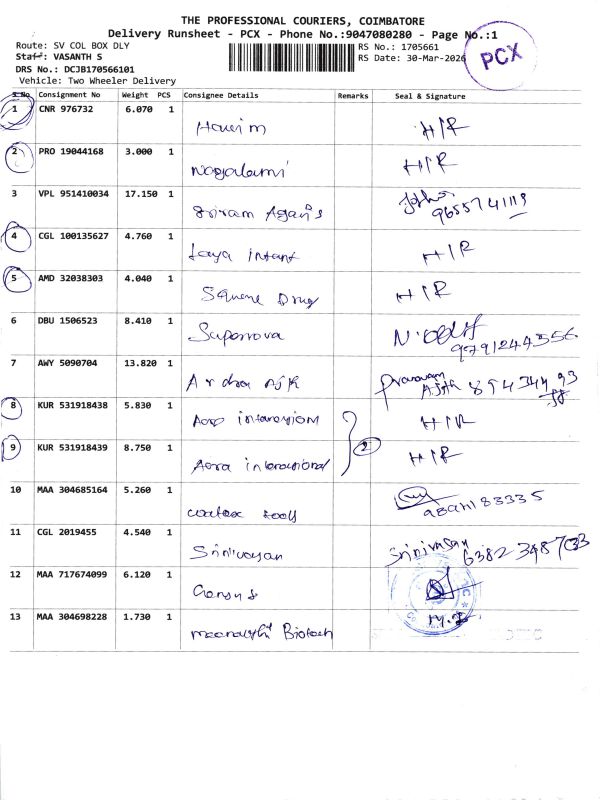 THE PROFESSIONAL COURIERS, COIMBATORE
Delivery Runsheet - PCX - Phone No.:9047080280 - Page No.:1
Route: SV COL BOX DLY
Staff: VASANTH S
RS No.: 1705661
RS Date: 30-Mar-2026
PCX
DRS No.: DCJB170566101
Vehicle: Two Wheeler Delivery
S No Consignment No Weight PCS Consignee Details Remarks Seal & Signature
1 CNR 976732 6.070 1 H/R
2 PRO 19044168 3.000 1 H/R
3 VPL 951410034 17.150 1 Sriram Agan's
4 CGL 100135627 4.760 1 Jaya infant H/R
5 AMD 32038303 4.040 1 Square Drug H/R
6 DBU 1506523 8.410 1 Supernova 9791244356
7 AWY 5090704 13.820 1
8 KUR 531918438 5.830 1 H/R
9 KUR 531918439 8.750 1 2 H/R
10 MAA 304685164 5.260 1
11 CGL 2019455 4.540 1 Srinivasan Srinivasan 6382348703
12 MAA 717674099 6.120 1
13 MAA 304698228 1.730 1 Biotech